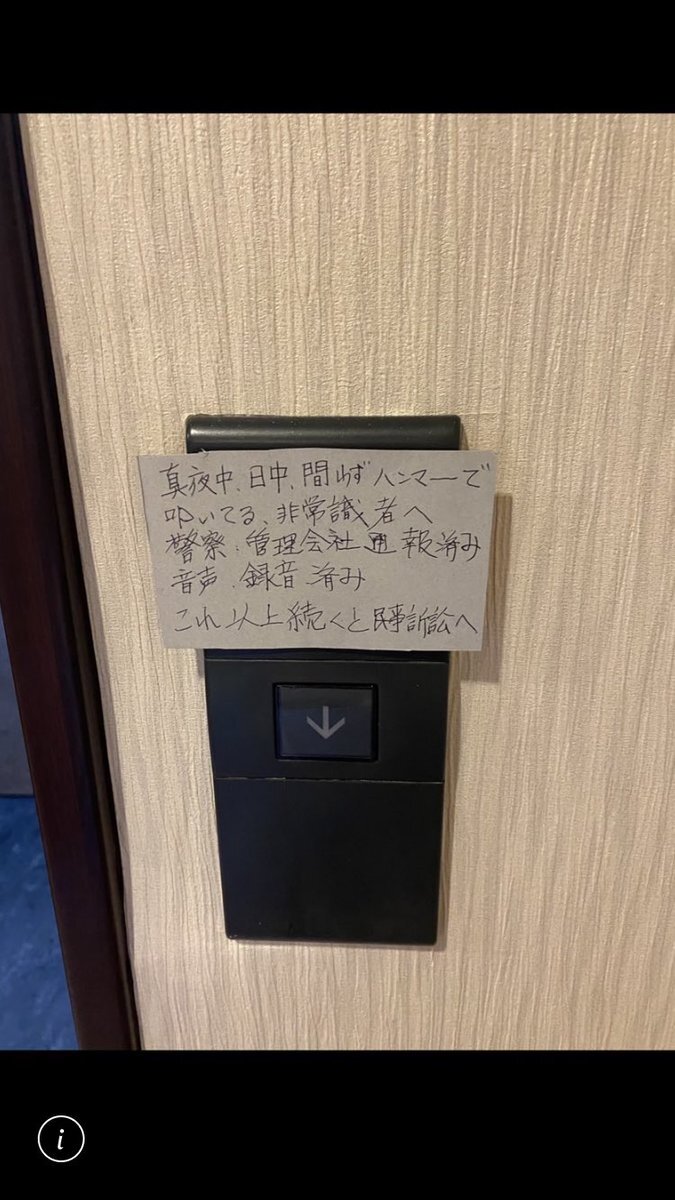 真夜中、日中、間わず ハンマーで
叩いてる、非常識者へ
警察、管理会社通報済み
音声、録音済み
これ以上続くと民事訴訟へ